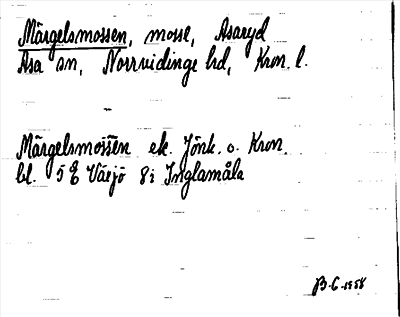 Märgelsmossen, mosse, Asaryd
Asa sn, Norrvidinge hd, Kron. l.
Märgelsmossen ek. Jönk. o. Kron.
bl. 5 E Växjö 8i Inglamåla
B-C 1958